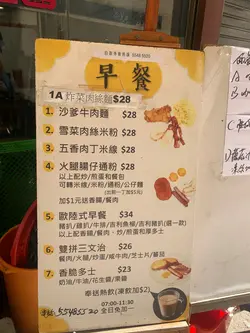 早餐
1A 炸菜肉絲麵$28
1. 沙爹牛肉麵 $28
2. 雪菜肉絲米粉 $28
3. 五香肉丁米線 $28
4. 火腿腸仔通粉 $28
以上配炒/煎蛋和餐包
可轉米線/米粉/通粉/公仔麵
加$1元送香腸/餐肉
5. 歐陸式早餐 $34
豬扒/雞扒/牛排/吉列魚柳/吉利豬扒(選一款)
以上配香腸/餐肉、炒/煎蛋和厚多士
6. 雙拼三文治 $26
餐肉/火腿/炒蛋/咸牛肉/芝士片/蕃茄
7. 香脆多士 $23
奶油/牛油/花生醬/果醬
奉送熱飲(凍飲加$2)
07:00-11:30
全日免加一